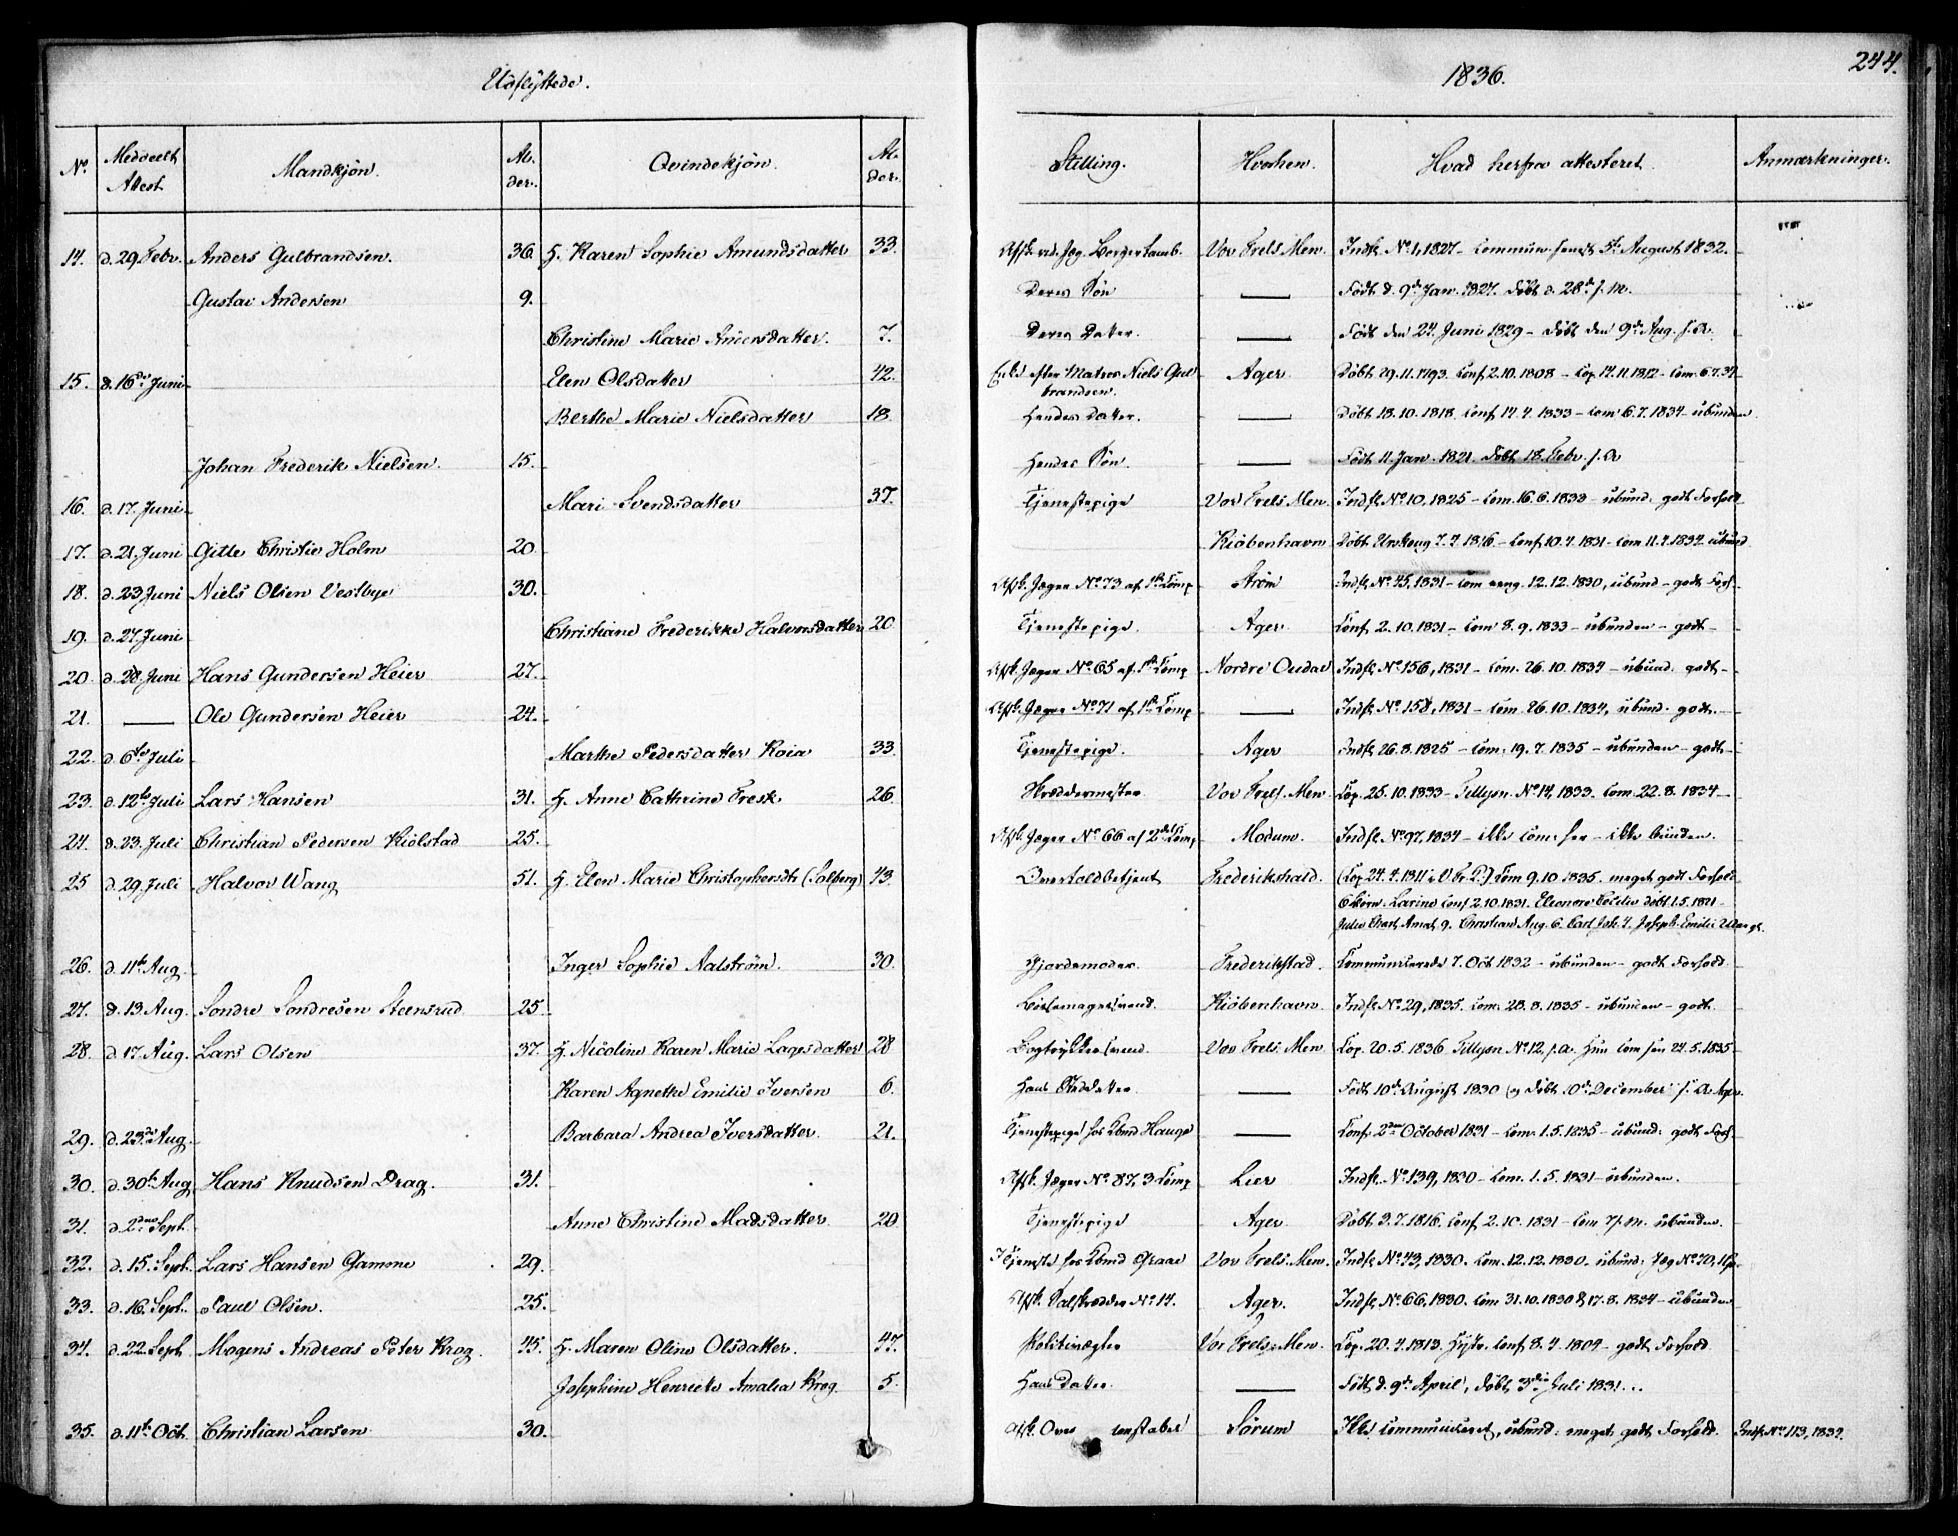 Udflyttede.
1836.
244.
No | Meddeelt Attest | Mandkjön. | Alder. | Qvindekjön. | Alder. | Stilling. | Hvorhen. | Hvad herfra attesteret. | Anmærkninger.
14. | d. 29. Febr. | Anders Gulbrandsen. | 36. | H. Karen Sophie Amundsdatter | 33. | Afsk. | Vor Frels. Men. | Indfl. No 1, 1827 - Communi. senest 5te August 1832.
Gustav Andersen | 9. | Deres Sön | — | Födt d. 9de Jan. 1827. Döbt d. 28de s. M.
Christine Marie Andersdatter. | 7. | Deres Datter. | — | Födt den 24. Juni 1829 - döbt den 9de Aug. s. A.
15. | d. 16de Juni | Elen Olsdatter | 42. | Enke efter Matros Niels Gulbrandsen. | Ager | Döbt 29.11.1793. Conf. 2.10.1808 - Cop. 12.11.1812 - Com. 6.7.34
Berthe Marie Nielsdatter | 18. | Hendes Datter. | — | Döbt 18.10.1818. Conf. 14.4.1833 - Com 6.7.1834 - ubunden
Johan Frederik Nielsen. | 15. | Hendes Sön. | — | Födt 11. Jan. 1821. Döbt 18. Febr. s. A.
16. | d. 17. Juni | Mari Svendsdatter | 37. | Tjenestepige | Vor Frels. Men. | Indfl. No 10, 1825 - Com. 16.6.1833 - ubund. godt Forhold
17. | d. 21. Juni | Gitte Christie Holm | 20. | Kiöbenhavn | Döbt Urskoug 7.7.1816 - Conf. 10.4.1831 - Com 11.4.1834 ubund
18. | d. 23 Juni | Niels Olsen Vestbye | 30. | Afsk. Jæger No 73 af 1ste Comp | Ström | Indfl. No 45, 1831 - Com eng. 12.12.1830, ubund - godt Forh.
19. | d. 27. Juni | Christiane Frederikke Halvorsdatter | 20 | Tjenestepige. | Ager | Conf. 2.10.1831 - Com 8.9.1833 - ubunden - godt
20. | d. 28. Juni | Hans Gundersen Heier | 27. | Afsk. Jæger No 65 af 1ste Comp | Nordre Oudal | Indfl. No 156, 1831 - Com. 26.10.1834 - ubund. godt -
21. | — | Ole Gundersen Heier | 24. | Afsk. Jæger No 71 af 1ste Comp | — | Indfl. No 158, 1831 - Com. 26.10.1834, ubund. godt.
22. | d. 6te Juli | Marthe Pedersdatter Koia | 33. | Tjenestepige. | Ager | Indfl. 26.8.1825 - Com. 19.7.1835 - ubunden - godt
23. | d. 12te Juli | Lars Hansen | 31. | H. Anne Cathrine Fresk. | 26. | Skræddermester | Vor Frels. Men | Cop. 25.10.1833 - Tillysn. No 14, 1833. Com. 22.8.1834
24. | d. 23. Juli | Christian Pedersen Kiölstad | 25. | Afsk. Jæger No 66 af 2det Comp. | Modum. | Indfl. No 97, 1834 - ikke Com. her - ikke bunden.
25 | d. 29. Juli | Halvor Wang | 51. | H. Elen Marie Christophersdtr (Solberg) | 43. | Overtoldbetjent | Frederikshald. | (Cop. 24.4.1811 i V. Fr. K.) Com 9.10.1835. meget godt Forhold
6 Börn. Larine Conf 2.10.1831. Eleonore Cecilie döbt 1.5.1821 -
Julie Charl. Amal. 9. Christian Aug. 6. Carl Joh. 4. Joseph. Emilie 2 Aar gl.
26. | d. 11te Aug. | Inger Sophie Aalström. | 30. | Gjordemoder. | Frederikstad. | Communicerede 7. Oct 1832 - ubunden - godt Forhold.
27. | d. 13. Aug. | Sondre Sondresen Steensrud | 25. | Kiöbenhavn. | Indfl. No 29, 1835. Com. 23.8.1835 - ubunden - godt.
28. | d. 17. Aug. | Lars Olsen | 37. | H. Nicoline Karen Marie Lagesdatter | 28 | Bogtrykkersvend. | Vor Frels. Men. | Cop. 20.5.1836. Tillysn. No 12, s.a. Hun Com her 24.5.1835
Karen Agnethe Emilie Iversen | 6. | Hans Steddatter | — | Födt 10de August 1830 og döbt 10de December s. A. Ager.
29. | d. 23de Aug. | Barbara Andrea Iversdatter. | 21. | Tjenestepige hos Kbmd Hauge | — | Conf. 2den October 1831 - Com. 1.5.1835 - ubund. godt Forh.
30. | d. 30te Aug. | Hans Knudsen Drag. | 31. | Afsk. Jæger No 87, 3 Comp | Lier | Indfl. No 139, 1830 - Com. 1.5.1831 - ubunden.
31. | d. 2den Sept. | Anne Christine Madsdatter | 20 | Tjenestepige | Ager | Döbt 3.7.1816. Conf. 2.10.1831 - Com 7 s. M. ubunden.
32. | d. 15. Sept. | Lars Hansen Gamme | 29. | I Tjeneste hos Kbmd Graae | Vor Frels. Men. | Indfl. No 43, 1830. Com. 12.12.1830. ubund. Jæg No 70,
33. | d. 16. Sept. | Paul Olsen. | 25. | Afsk. No 14. | Ager. | Indfl. No 66, 1830. Com 31.10.1830 & 17.8.1834 - ubunden
34. | d. 22. Sept | Mogens Andreas Peter Krog. | 45. | H. Maren Oline Olsdatter. | 47. | Politivægter | Vor Frels. Men. | Cop. 20.4.1813. Conf. 8.4.1804 - godt Forhold.
Josephine Henriete Amalia Krog | 5. | Hans Datter. | — | Födt d. 9de April, döbt 3die Juli 1831...
35. | d. 11te Oct. | Christian Larsen | 30. | Afsk. Over | Sörum | Ikke communiceret, ubund. meget godt Forhold. | Indfl. No 113, 1832.